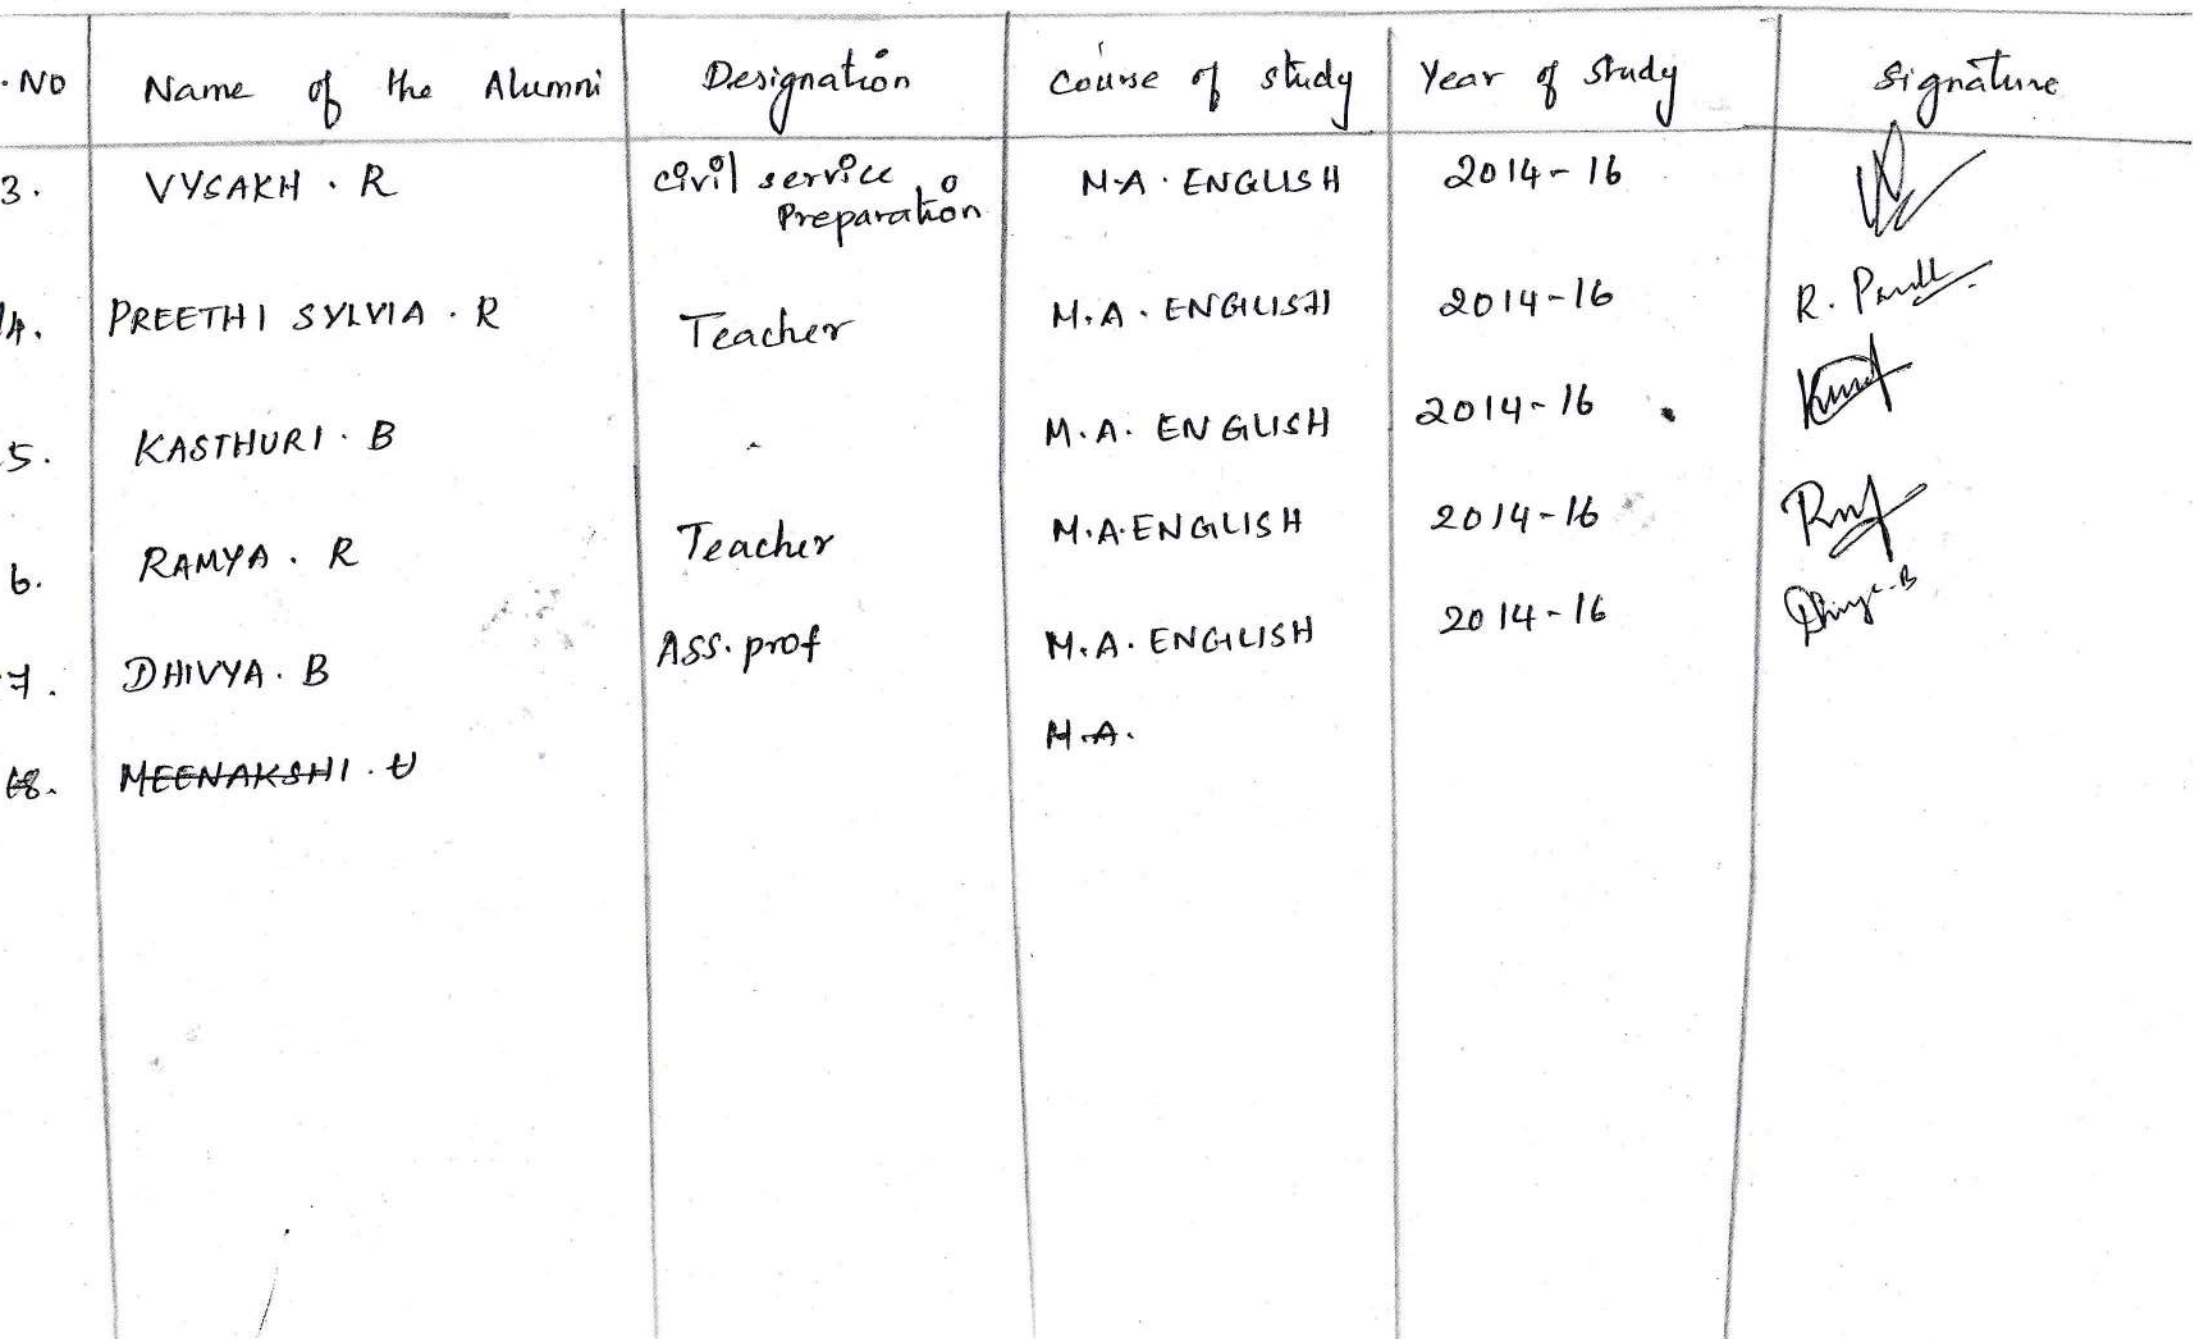 .NO Name of the Alumni Designation Course of study Year of study Signature
3. VYSAKH . R civil service Preparation M.A. ENGLISH 2014-16
14. PREETHI SYLVIA . R Teacher M.A. ENGLISH 2014-16 R.
5. KASTHURI . B - M.A. ENGLISH 2014-16
6. RAMYA . R Teacher M.A. ENGLISH 2014-16
7. DHIVYA . B Ass. prof M.A. ENGLISH 2014-16 Dhivya.B
8. MEENAKSHI . U M.A.